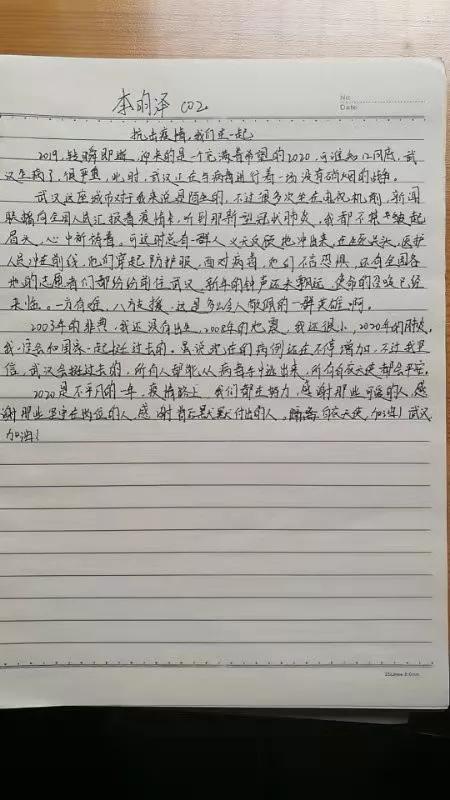 李明泽 C02
No.
Date
抗击疫情,我们在一起
2019,转瞬即逝,迎来的是一个充满着希望的2020,可谁知12月底,武
汉生病了,很严重,此时,武汉正在与病毒进行着一场没有硝烟的战争。
武汉这座城市对于我来说是陌生的,不过很多次坐在电视机前,新闻
联播向全国人民汇报着疫情,听到那新型冠状肺炎,我都不禁皱起
眉头,心中祈祷着。可这时总有一群人义无反顾地冲出来,在生死关头,医护
人员冲在前线,他们穿起防护服,面对病毒,他们不惧,还有全国各
地的志愿者们都纷纷前往武汉,新年的钟声还未飘远,使命的召唤已经
来临。一方有难,八方支援,这是多么令人敬佩的一群英雄啊。
2003年的非典,我还没有出生,2008年的地震,我还很小,2020年的肺炎,
我一定会和国家一起挺过去的。虽说现在的病例还在不停增加,不过我坚
信,武汉会挺过去的,所有人都能从病毒中逃出来,所有白衣天使都会平安。
2020是不平凡的一年,疫情路上,我们都在努力,感谢那些可爱的人,感
谢那些坚守在岗位的人,感谢背后默默付出的人,白衣天使,加油!武汉
加油!